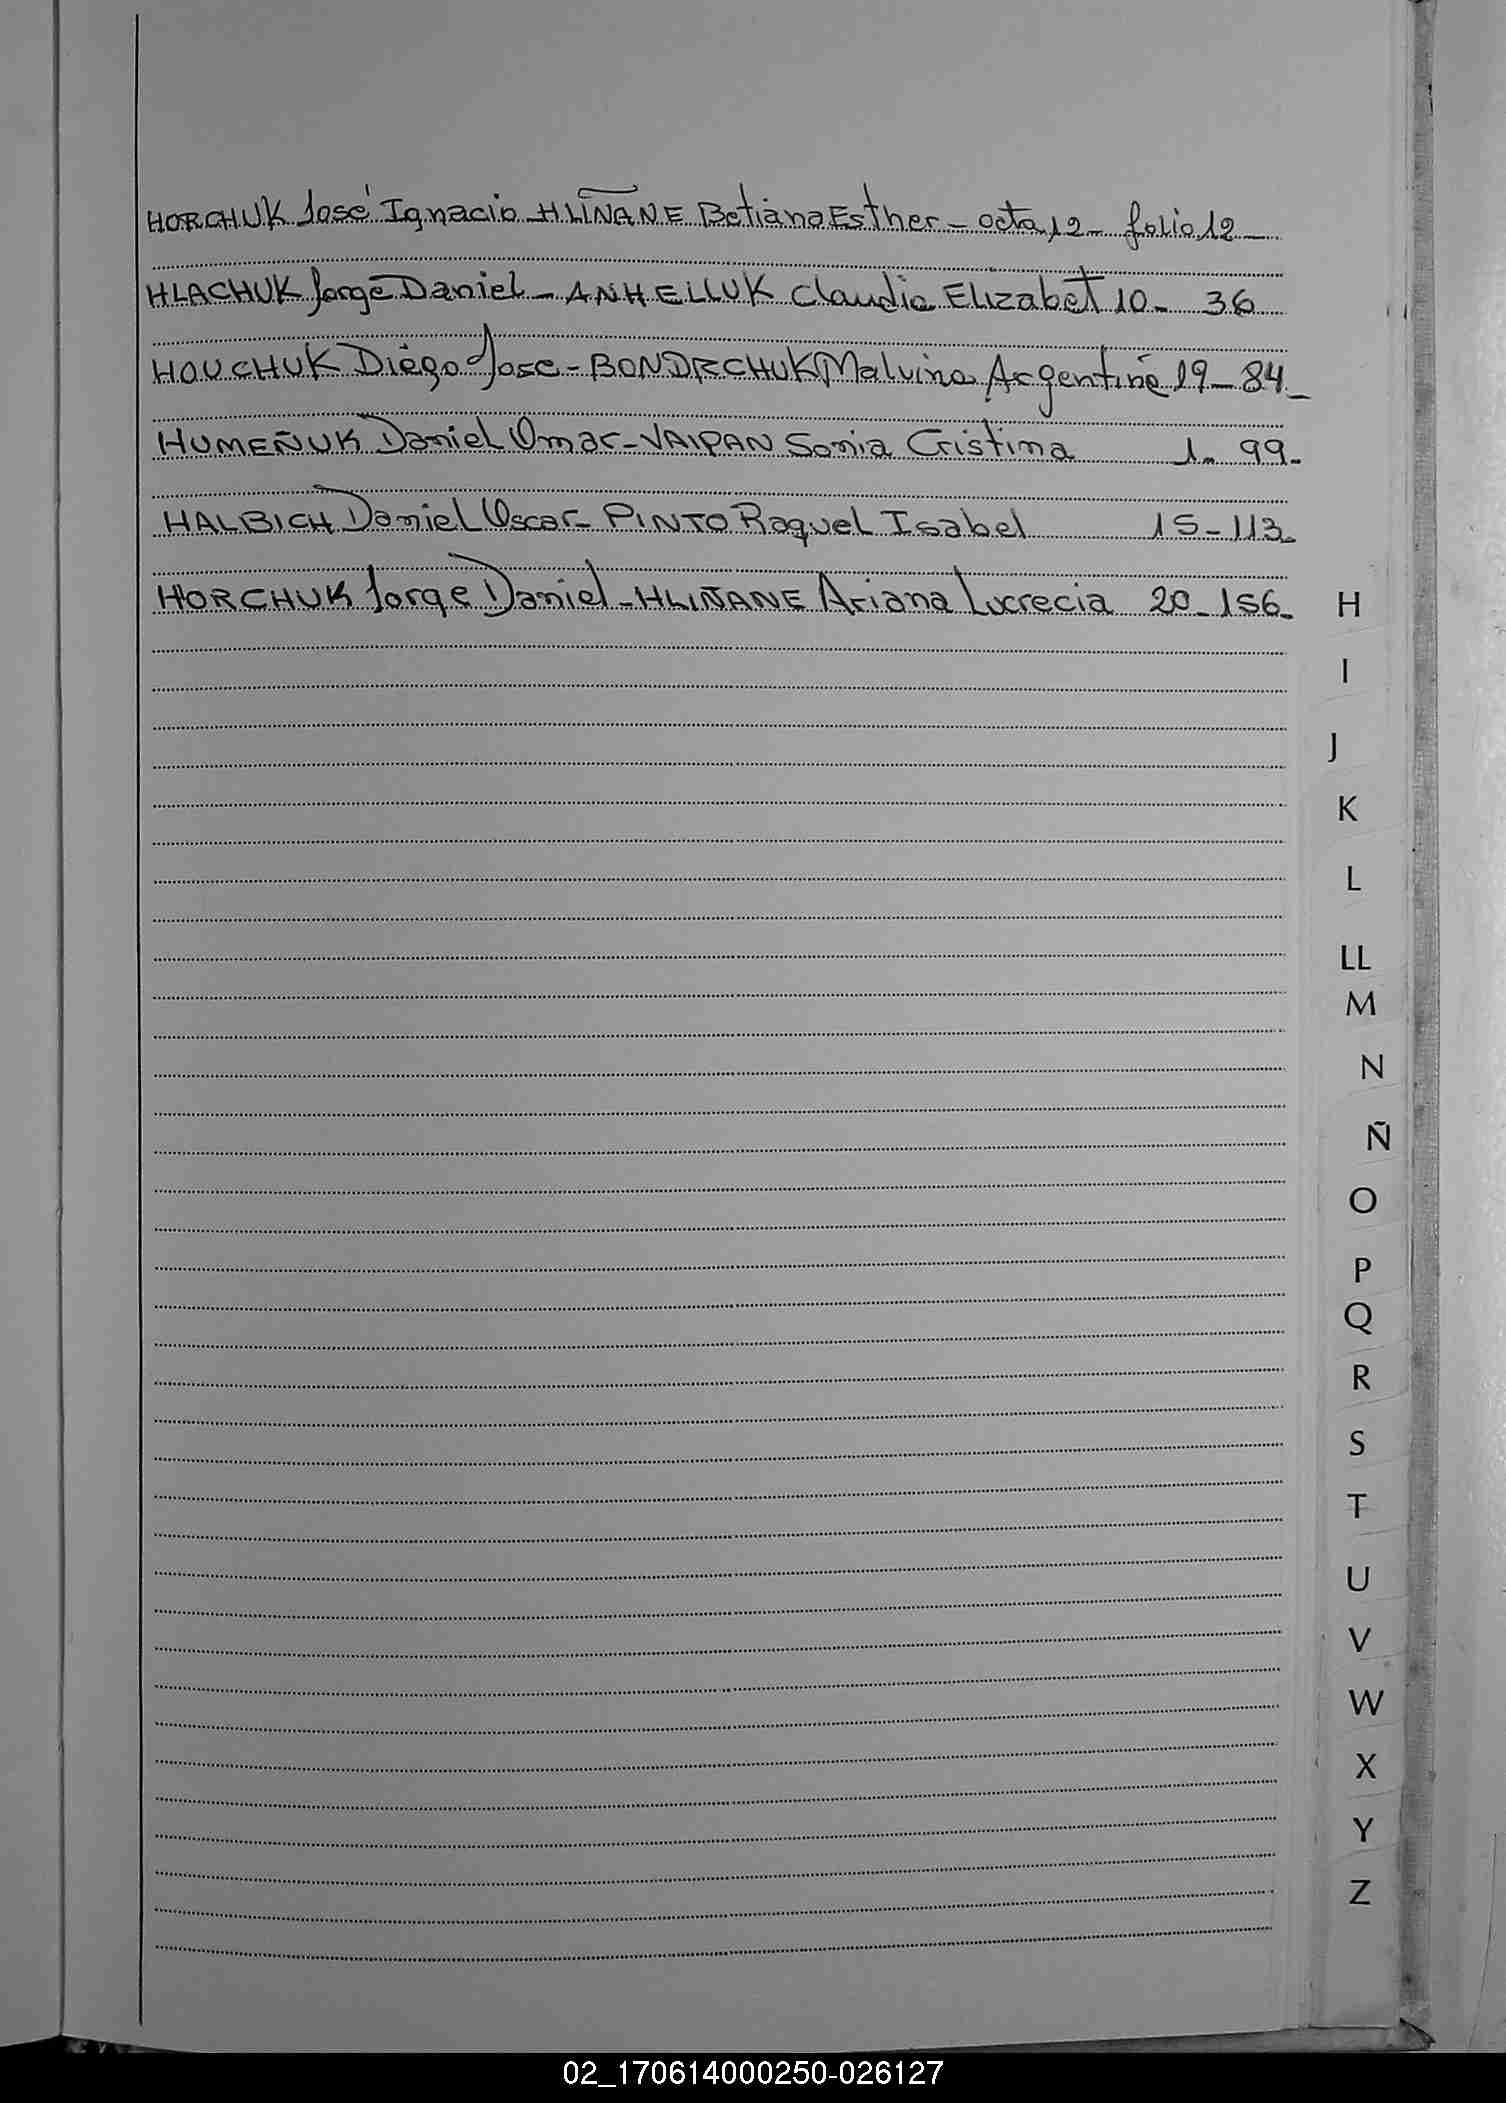 HORCHUK José Ignacio - HLIÑANE Betiana Esther - acta 12 - folio 12 -
HLACHUK Jorge Daniel - ANHELLUK Claudia Elizabet 10 - 36
HOUCHUK Diego Jose - BONDRCHUK Malvina Argentina 19 - 84 -
HUMEÑUK Daniel Omar - VAIPAN Sonia Cristina 1 - 99 -
HALBICH Daniel Oscar - PINTO Raquel Isabel 15 - 113 -
HORCHUK Jorge Daniel - HLIÑANE Ariana Lucrecia 20 - 156 -
H
I
J
K
L
LL
M
N
Ñ
O
P
Q
R
S
T
U
V
W
X
Y
Z
02_170614000250-026127